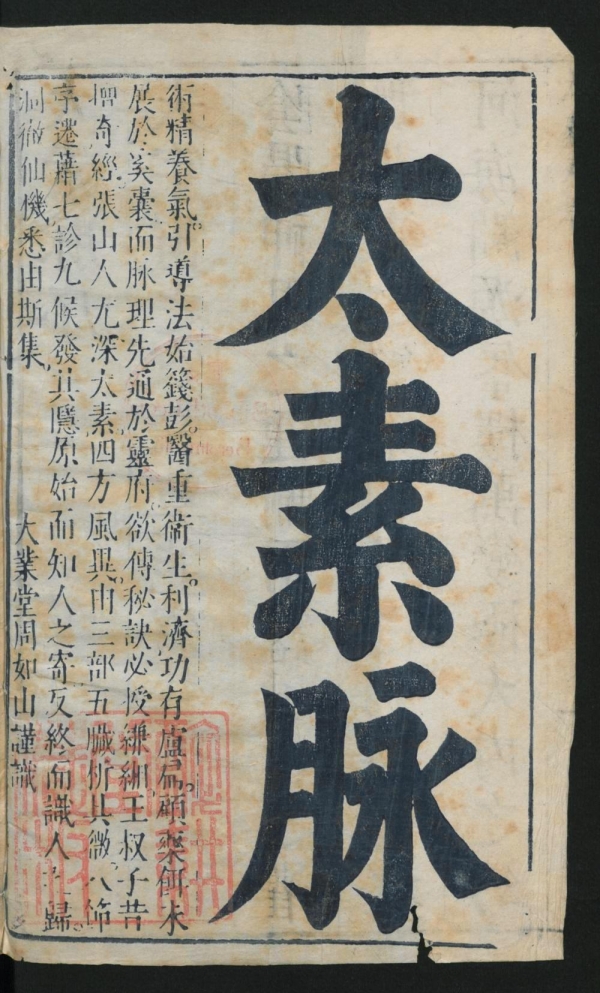 太素脉
術精養氣引導法始籛彭醫重衞生利濟功有盧扁顧藥餌未
展於奚囊而脉理先通於靈府欲傳秘訣必授縑緗王叔子昔
增奇經張山人尤深太素四方風異由三部五臟析其微八節
亭遷藉七診九候發其隱原始而知人之寄反終而識人歸
洞徹仙機悉由斯集
大業堂周如山謹識